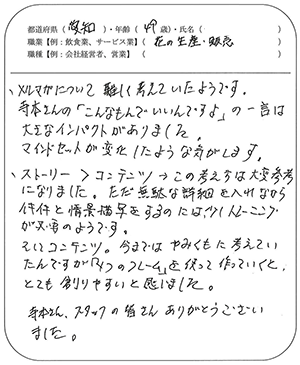 都道府県（愛知）・年齢（49歳）・氏名（　　）
職業【例：飲食業、サービス業】（花の生産・販売）
職種【例：会社経営者、営業】（　　）
、メルマガについて 難しく考えていたようです。
寺本さんの「こんなもんでいいんですよ」の一言は
大きなインパクトがありました。
マインドセットが変化したような気がします。
、ストーリー > コンテンツ → この考え方は大変参考
になりました。ただ無駄な詳細を入れながら
淡々と情景描写をするのには少しトレーニング
が必要のようです。
そしてコンテンツ。今まではやみくもに考えてい
たんですが「4つのフレーム」を使って作っていくと、
とても創りやすいと感じました。
寺本さん、スタッフの皆さんありがとうござい
ました。